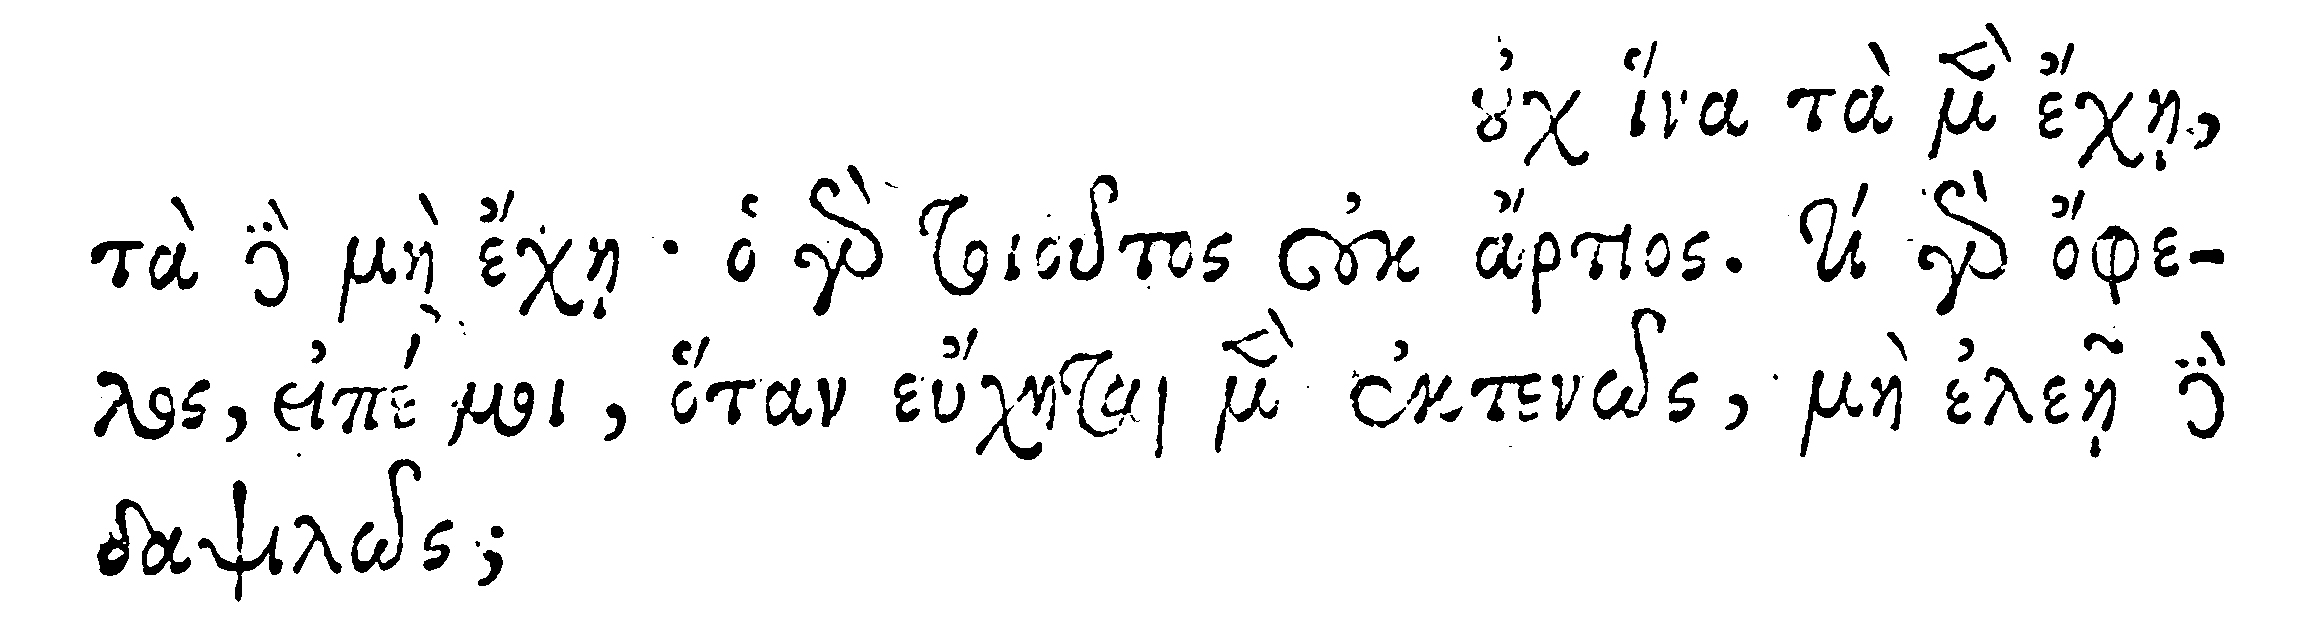 οὐχ ἵνα τὰ μὲν ἔχῃ,
τὰ δὲ μὴ ἔχῃ· ὁ γὰρ τοιοῦτος οὐκ ἄρτιος. τί γὰρ ὄφε-
λος, εἰπέ μοι, ὅταν εὔχηται μὲν ἐκτενῶς, μὴ ἐλεῇ δὲ
δαψιλῶς;